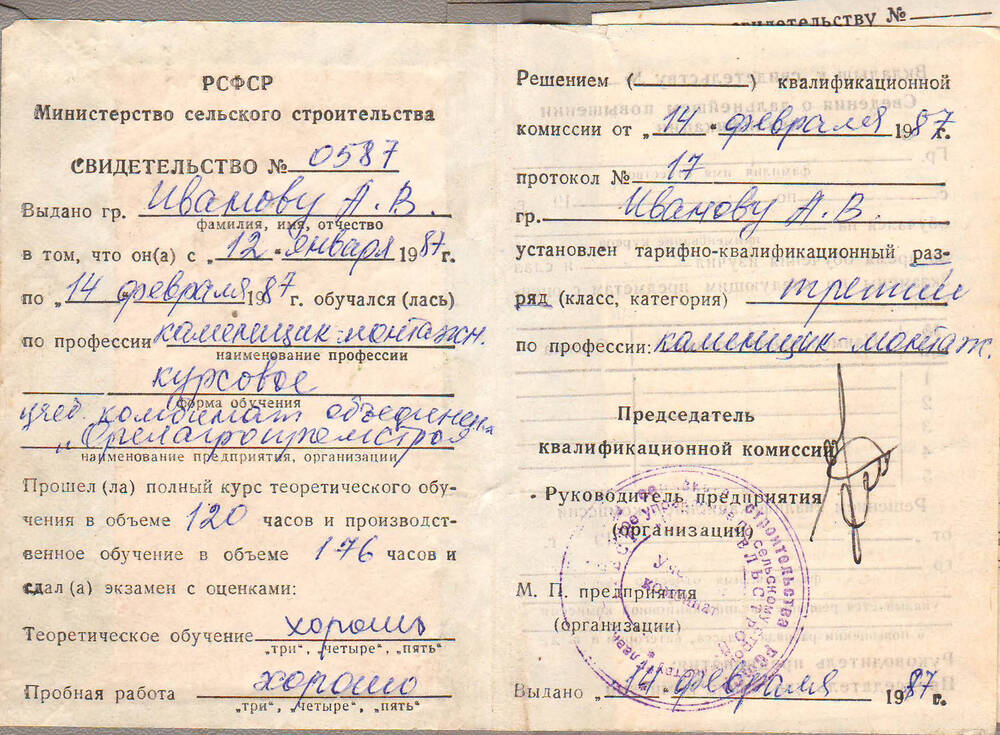 свидетельству №
РСФСР
Министерство сельского строительства
СВИДЕТЕЛЬСТВО № 0587
Выдано гр. Иванову А. В.
фамилия, имя, отчество
в том, что он(а) с „12“ января 1987 г.
по „14 февраля 1987 г. обучался (лась)
по профессии каменщик монтажн.
наименование профессии
курсовое
форма обучения
комбинат объединен
наименование предприятия, организации
Прошел (ла) полный курс теоретического обу-
чения в объеме 120 часов и производст-
венное обучение в объеме 176 часов и
сдал (а) экзамен с оценками:
Теоретическое обучение хорошо
„три", „четыре", „пять"
Пробная работа хорошо
„три", „четыре", „пять"
Решением (             ) квалификационной
комиссии от „14“ февраля 1987 г.
протокол № 17
гр. Иванову А. В.
установлен тарифно-квалификационный раз-
ряд (класс, категория) третий
по профессии: каменщик монтаж.
Председатель
квалификационной комиссии
Руководитель предприятия
(организации)
М. П. предприятия
(организации)
Выдано „14 февраля 1987 г.